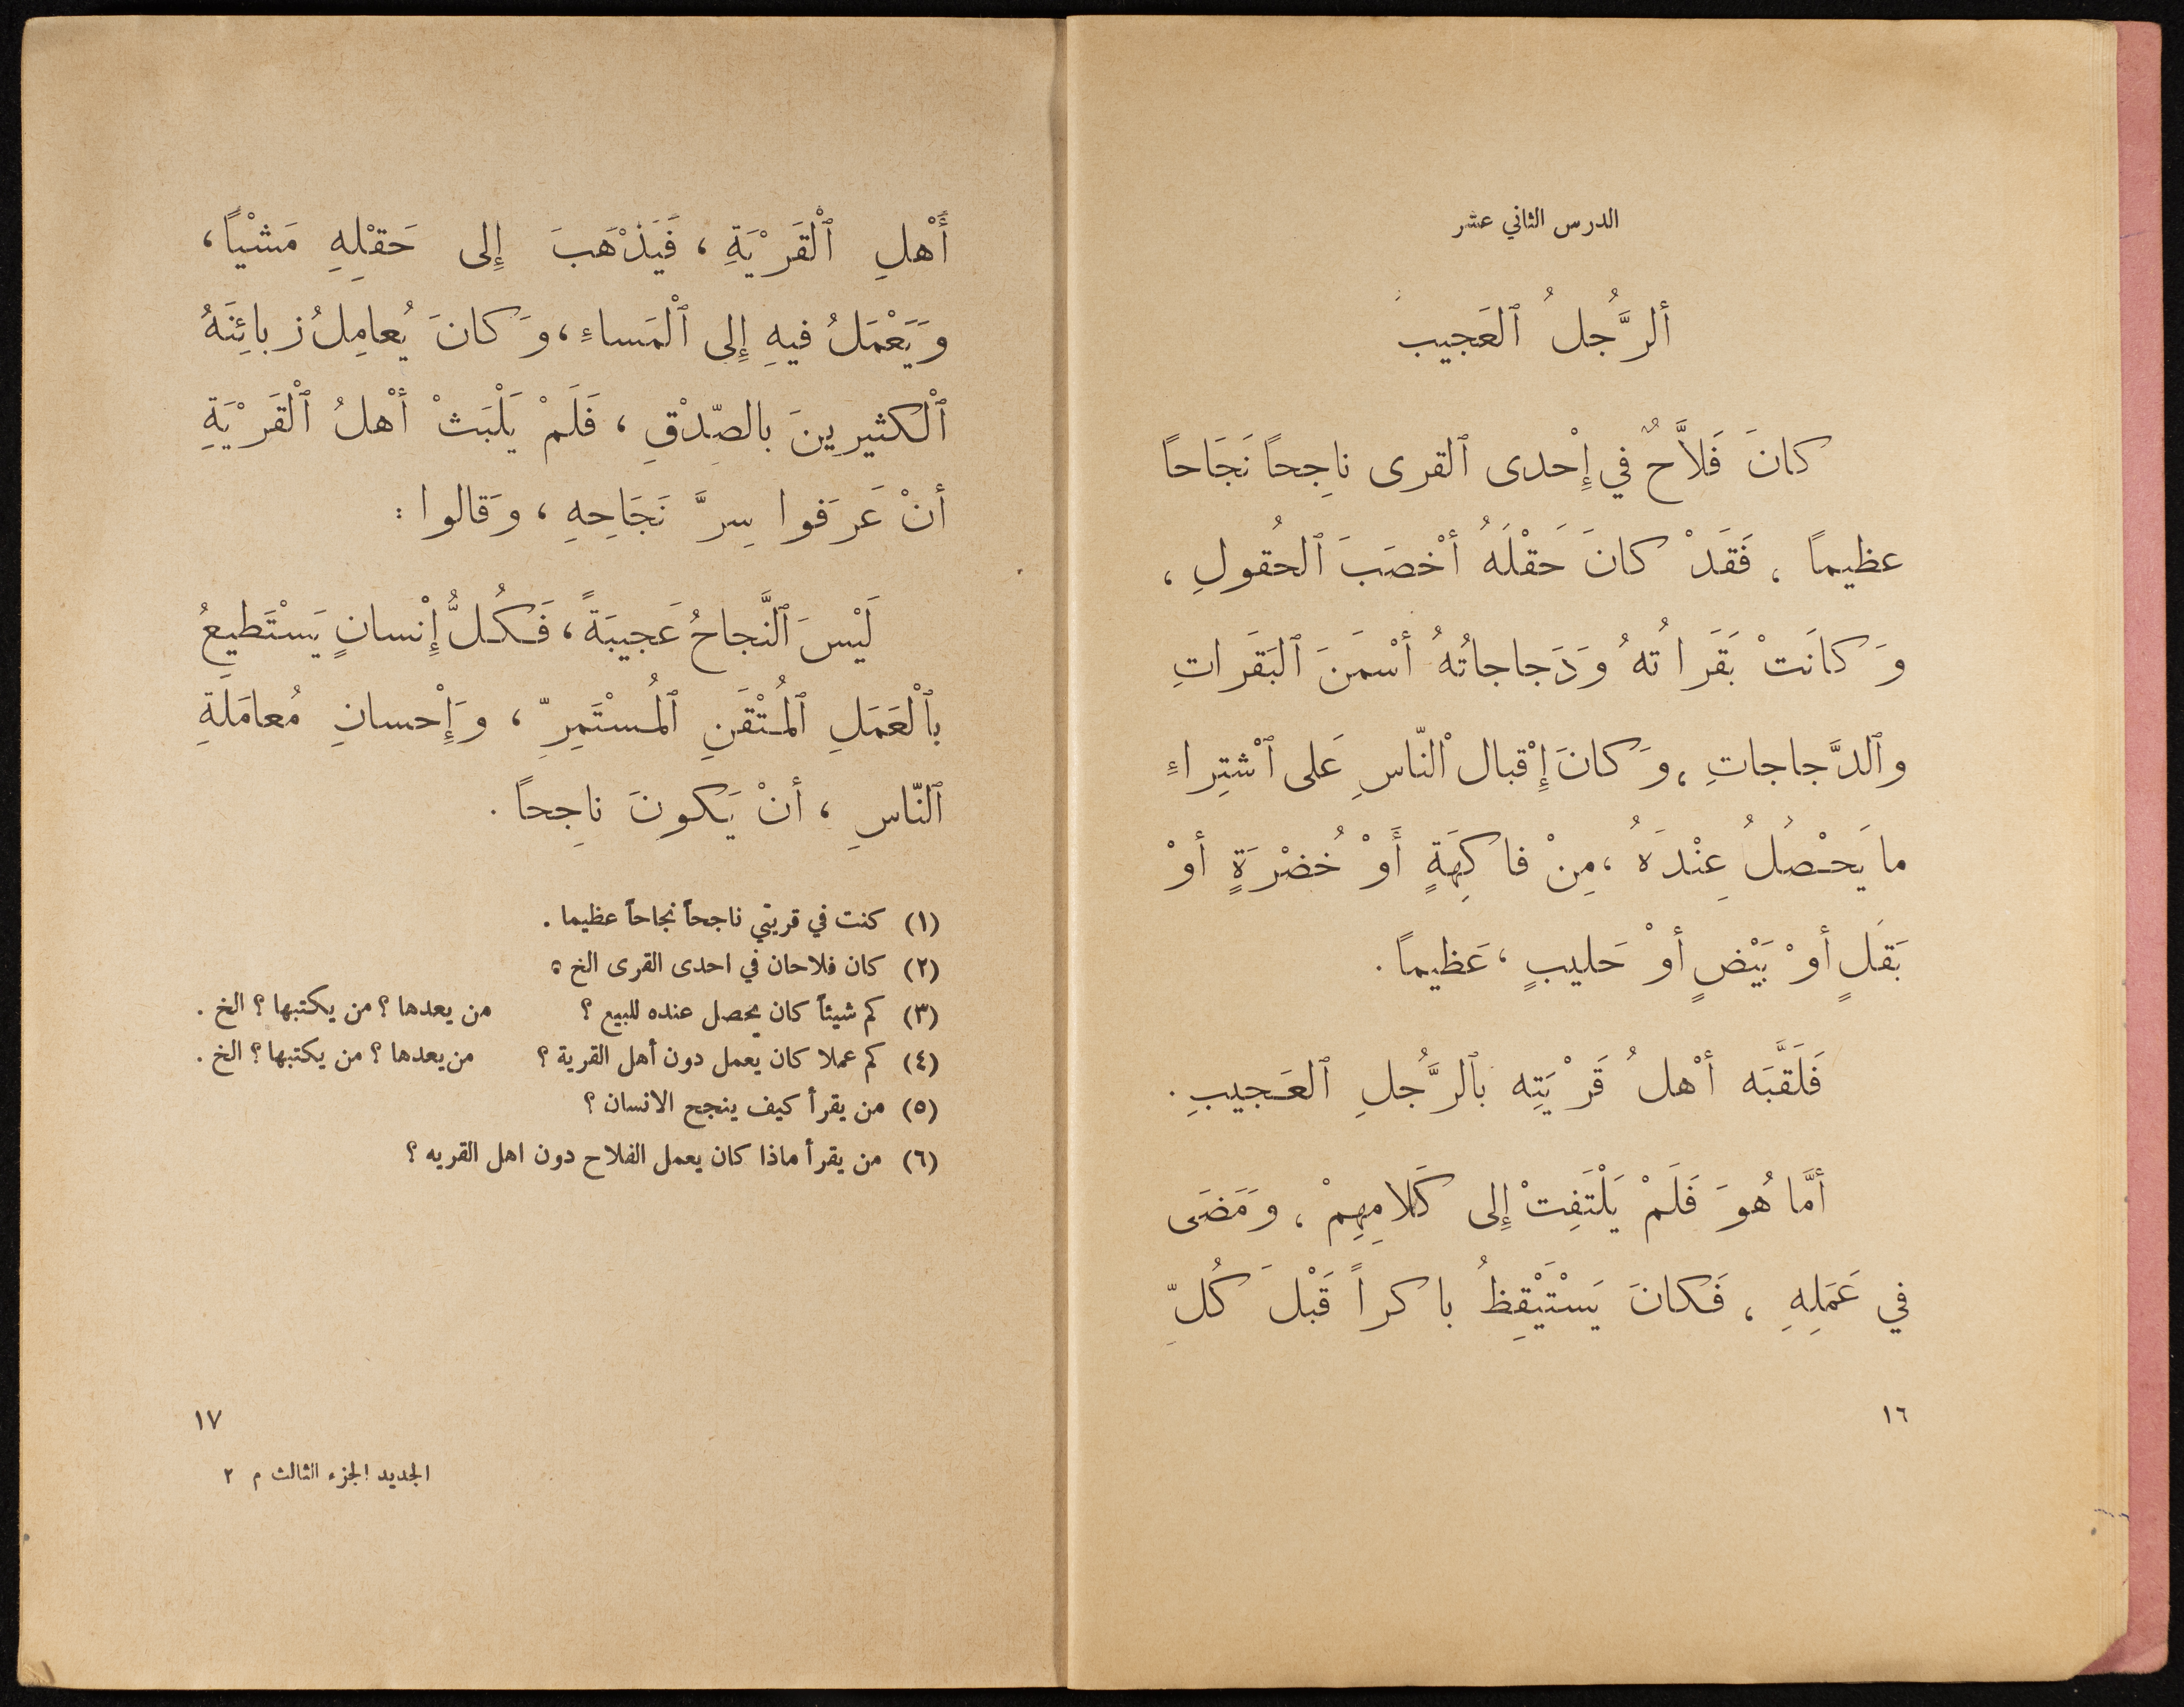 الدرس الثاني عشر
أَلرَّجُلُ ٱلعَجيبُ
كانَ فَلاَّحٌ في إِحْدى ٱلقرى ناجِحاً نَجَاحاً
عظيماً ، فَقَدْ كانَ حَقْلَهُ أَخْصَبَ ٱلحُقولِ ،
وَكانَتْ بَقَراتُهُ وَدَجاجاتُهُ أَسْمَنَ ٱلبَقَراتِ
وٱلدَّجاجاتِ ، وَكانَ إِقْبال ٱلنّاسِ عَلى ٱشْتِراءِ
ما يَحْصلُ عِنْدَهُ ، مِنْ فاكِهَةٍ أَوْ خُضْرَةٍ أَوْ
بَقَلٍ أَوْ بَيْضٍ أَوْ حَليبٍ ، عَظيماً .
فَلَقَّبَه أَهْلُ قَرْيَتِه بٱلرَّجُلِ ٱلعَجيبِ .
أَمَّا هُوَ فَلَمْ يَلْتَفِتْ إِلى كَلامِهِمْ ، وَمَضَى
في عَمَلِهِ ، فَكانَ يَسْتَيْقِظُ باكراً قَبْلَ كُلِّ
١٦
أَهْلِ ٱلْقَرْيَةِ ، فَيَذْهَبَ إِلى حَقْلِهِ مَشْيًا ،
وَيَعْمَلُ فيهِ إِلى ٱلْمَساءِ ، وَكانَ يُعامِلُ زبائِنَهُ
ٱلْكثيرينَ بالصِّدْقِ ، فَلَمْ يَلْبَثْ أَهْلُ ٱلْقَرْيَةِ
أَنْ عَرَفوا سِرَّ نَجَاحِهِ ، وَقالوا :
لَيْسَ ٱلنَّجاحُ عَجيبَةً ، فَكُلُّ إِنْسانٍ يَسْتَطيعُ
بٱلْعَمَلِ ٱلْمُتْقَنِ ٱلْمُسْتَمِرِّ ، وَإِحْسانِ مُعامَلَةِ
ٱلنّاسِ ، أَنْ يَكونَ ناجِحاً .
(١) كنت في قريتي ناجحاً نجاحاً عظيما .
(٢) كان فلاحان في احدى القرى الخ ٥
(٣) كم شيئاً كان يحصل عنده للبيع ؟ من يعدها ؟ من يكتبها ؟ الخ .
(٤) كم عملا كان يعمل دون أهل القرية ؟ من يعدها ؟ من يكتبها ؟ الخ .
(٥) من يقرأ كيف ينجح الانسان ؟
(٦) من يقرأ ماذا كان يعمل الفلاح دون اهل القريه ؟
١٧
الجديد الجزء الثالث م ٢